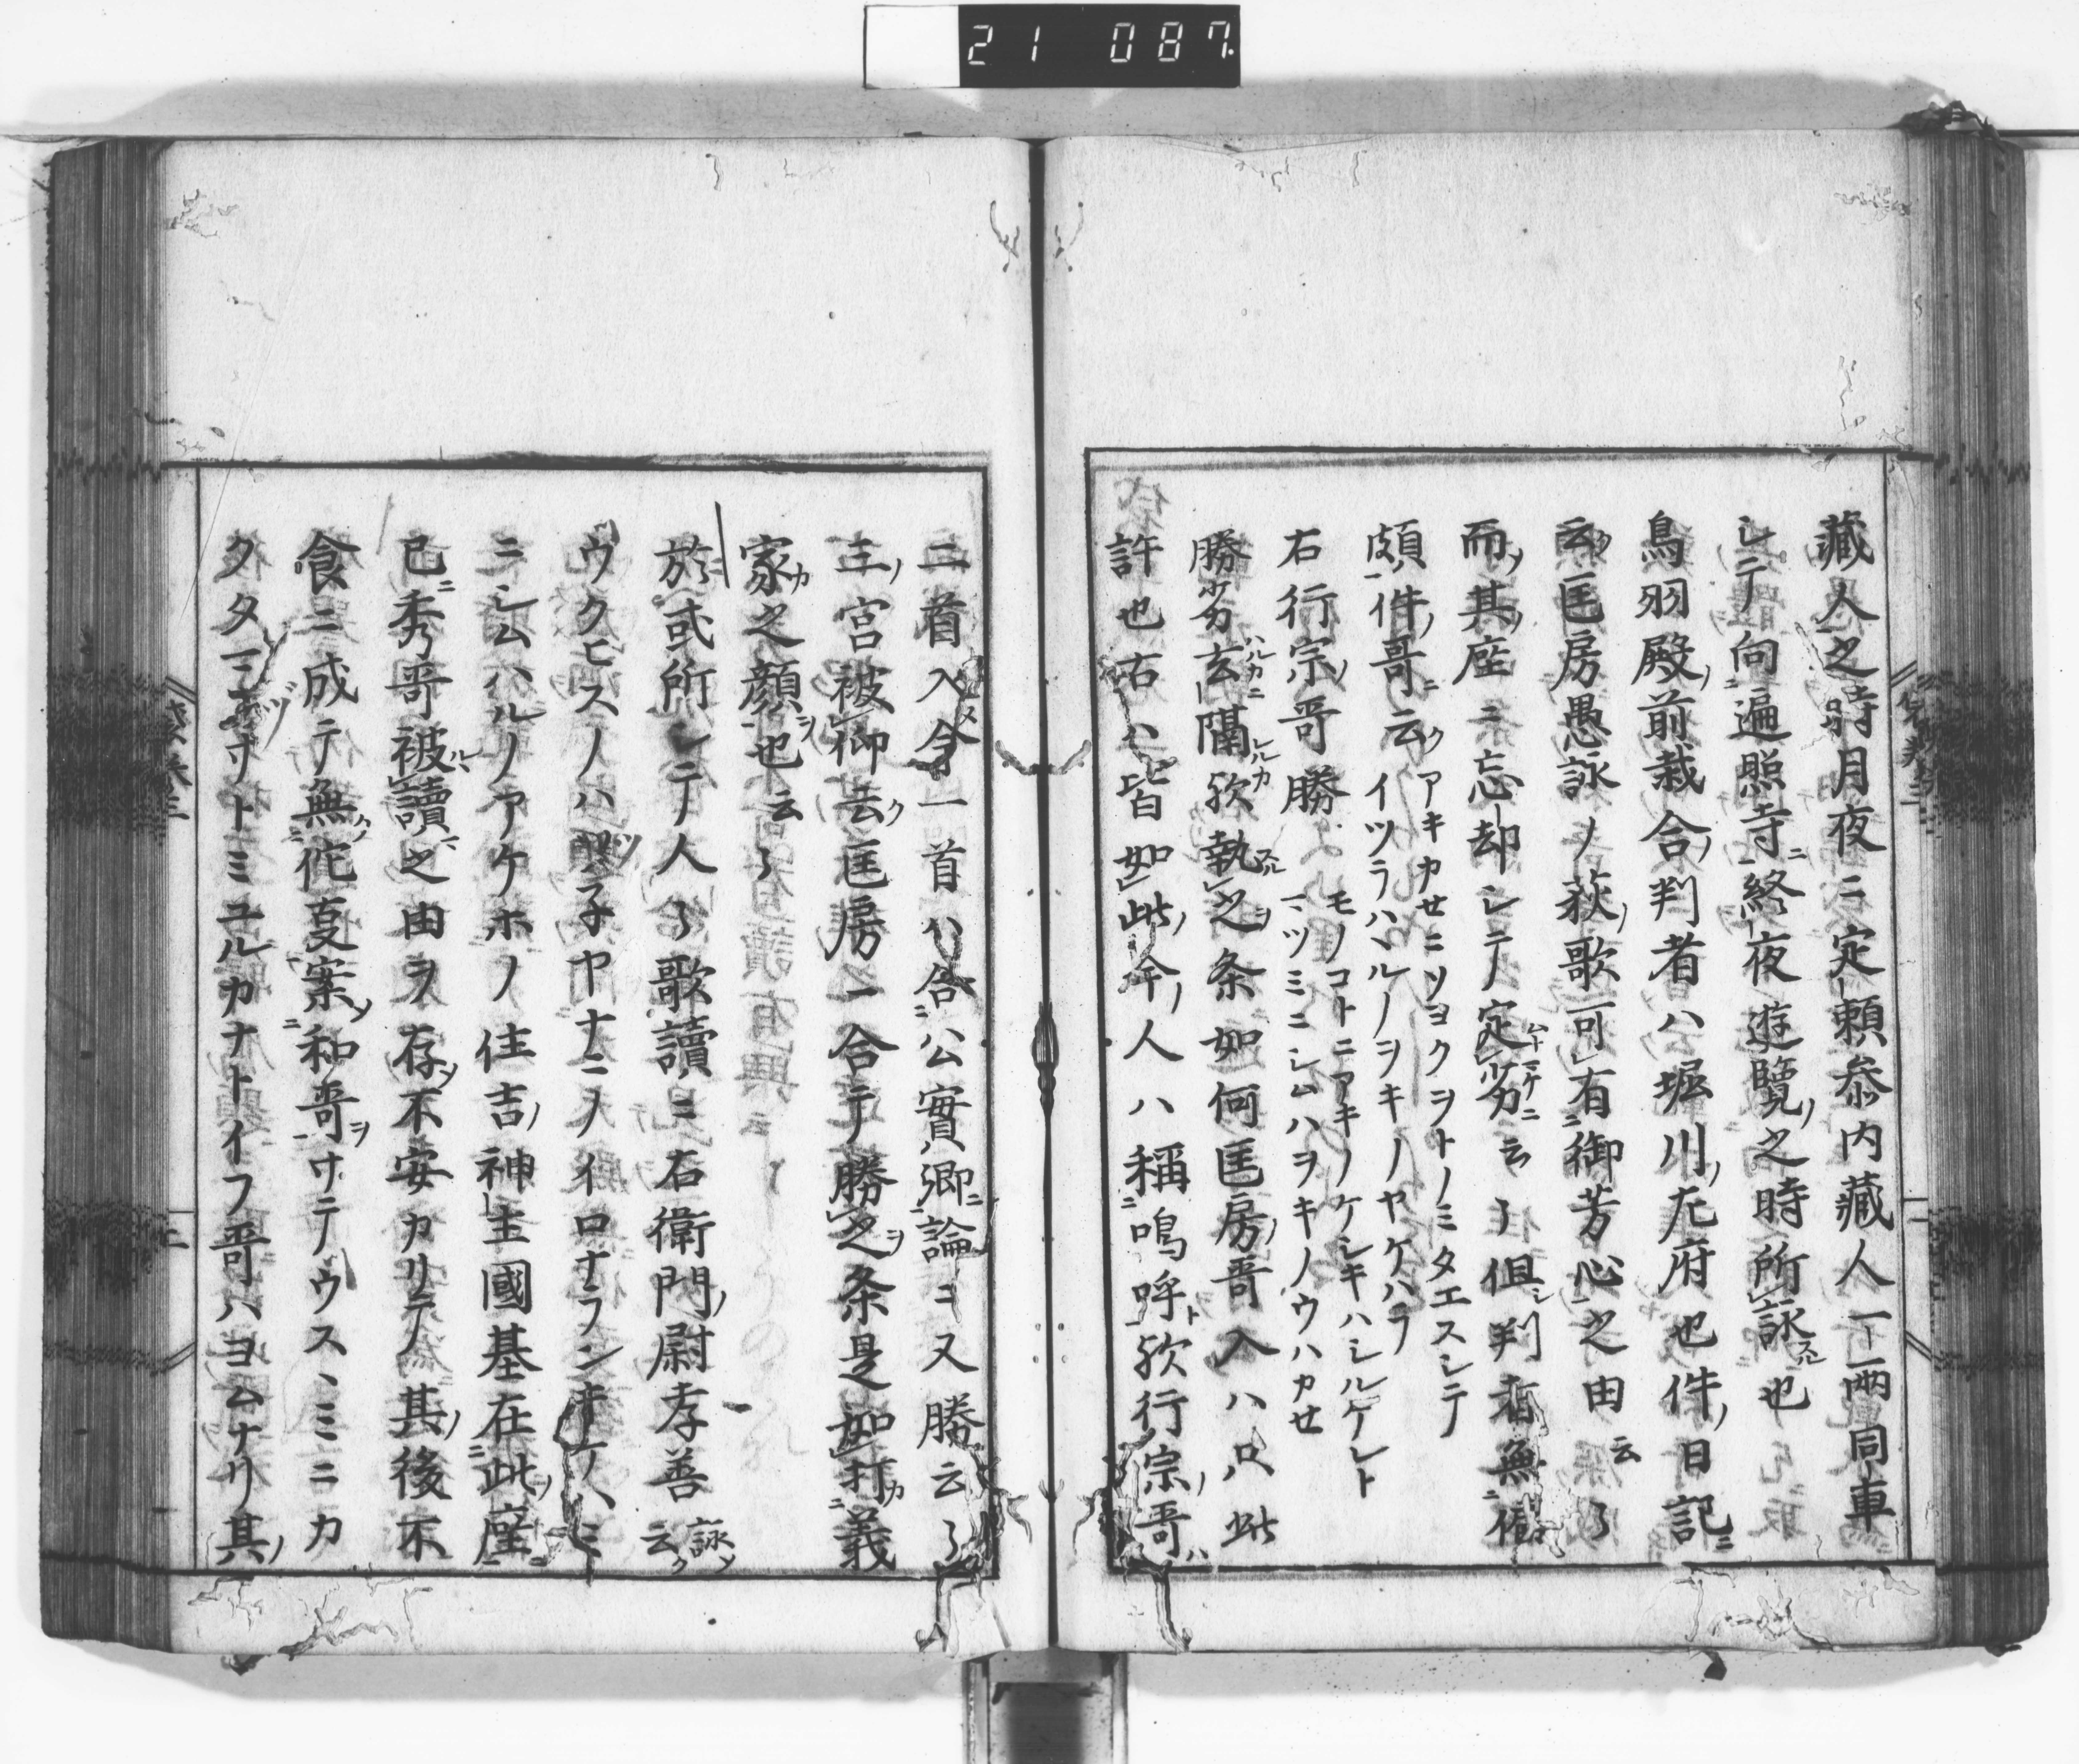 21 087
藏人之時月夜ニ定頼参内藏人一両同車
シテ向遍照寺終夜遊覧之時所詠也
鳥羽殿前栽合判者ハ堀川左府也件日記
云匡房愚詠ノ萩歌可有御芳心之由云々
而其座ニ忘却シテ定劣云々但判者無
頗件哥云 アキカセニツヨクヲトノミタエスシテ
イツラハハルノヲキノヤケハラ
右行宗哥勝 モノコトニアキノケシキハシルケレト
マツミニシムハヲキノウハカセ
勝劣玄隔欤執之条如何匡房哥入ハ只此
許也古ハ皆如此今人ハ稱嗚呼欤行宗哥
二首入今一首ハ合公實卿論ニ又勝云々
三宮被仰云匡房一合テ勝之条是如打義
家之顔也云々
於或所シテ人々歌讀ニ右衛門尉孝善詠云
ウクヒスノハ子ヤナニノイロナランサケハミ
ニシムハルノアケホノ住吉神主國基在此座
已秀哥被讀之由ヲ存不安カリテ其後不
食ニ成テ無他夏案和哥サテウスヽミニカ
クタマツサトミユルカナトイフ哥ハヨムナリ其